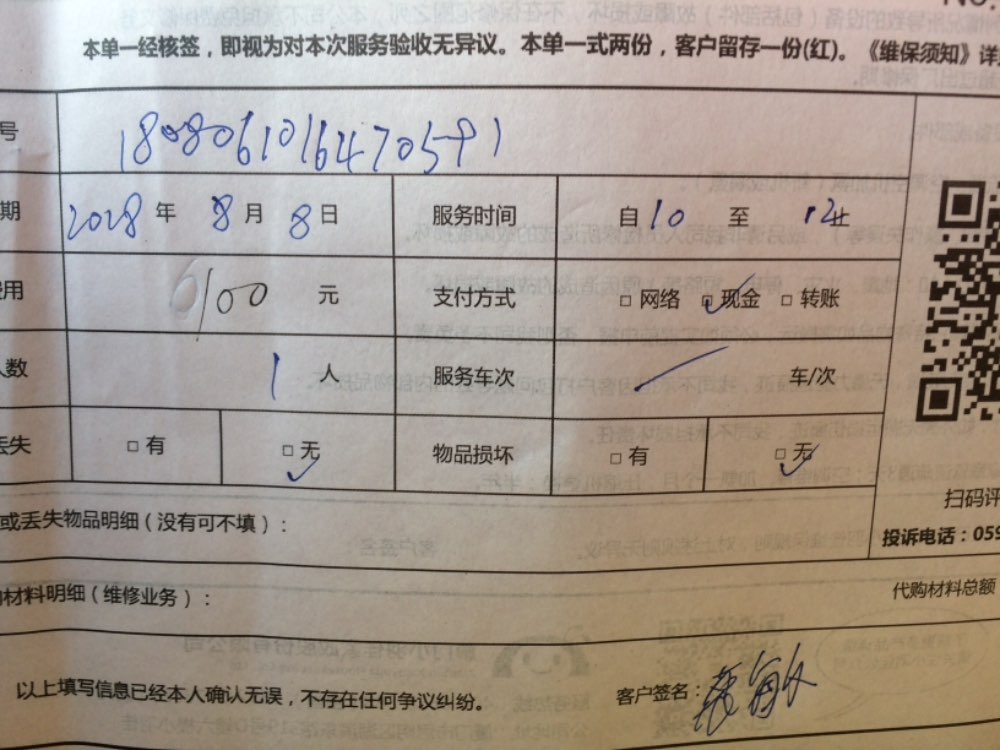 No.
本单一经核签，即视为对本次服务验收无异议。本单一式两份，客户留存一份(红)。《维保须知》详
号 1808061016470591
期 2028年 8月 8日 服务时间 自10 至 12
费用 100 元 支付方式 □ 网络 □ 现金 □ 转账
人数 1 人 服务车次 车/次
丢失 □ 有 □ 无 物品损坏 □ 有 □ 无
或丢失物品明细（没有可不填）：
扫码评
投诉电话：059
材料明细（维修业务）： 代购材料总额
以上填写信息已经本人确认无误，不存在任何争议纠纷。 客户签名：